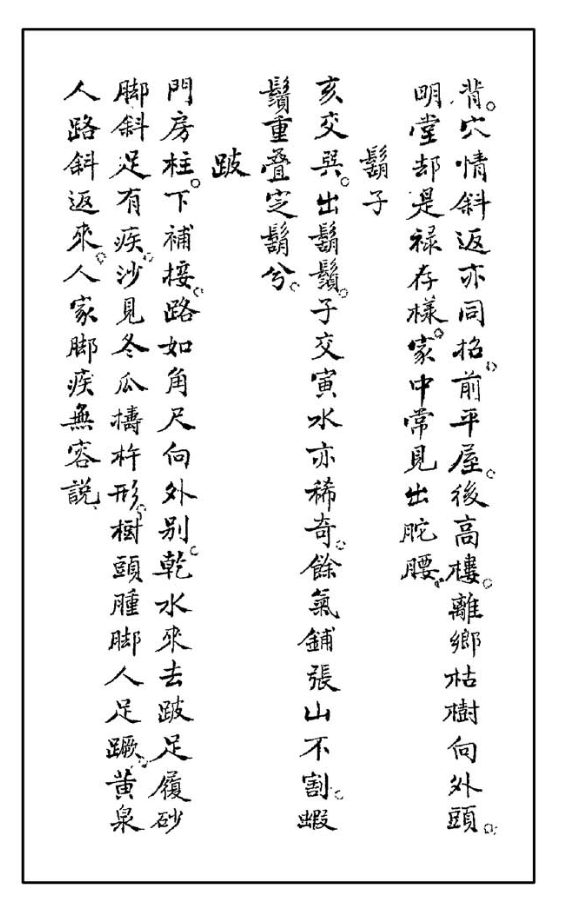 背。穴情斜返亦同招。前平屋。後高樓。離鄉枯樹向外頭。
明堂却是禄存樣。家中常見出駝腰。
鬍子
亥交巽。出鬍鬚。子交寅水亦稀奇。餘氣鋪張山不割。蝦
鬚重疊定鬍兮。
跛
門房柱。下補接。路如角尺向外別。乾水來去跛足履砂
脚斜足有疾。沙見冬瓜擣杵形。樹頭腫脚人足蹶。黃泉
人路斜返來。人家脚疾無容說